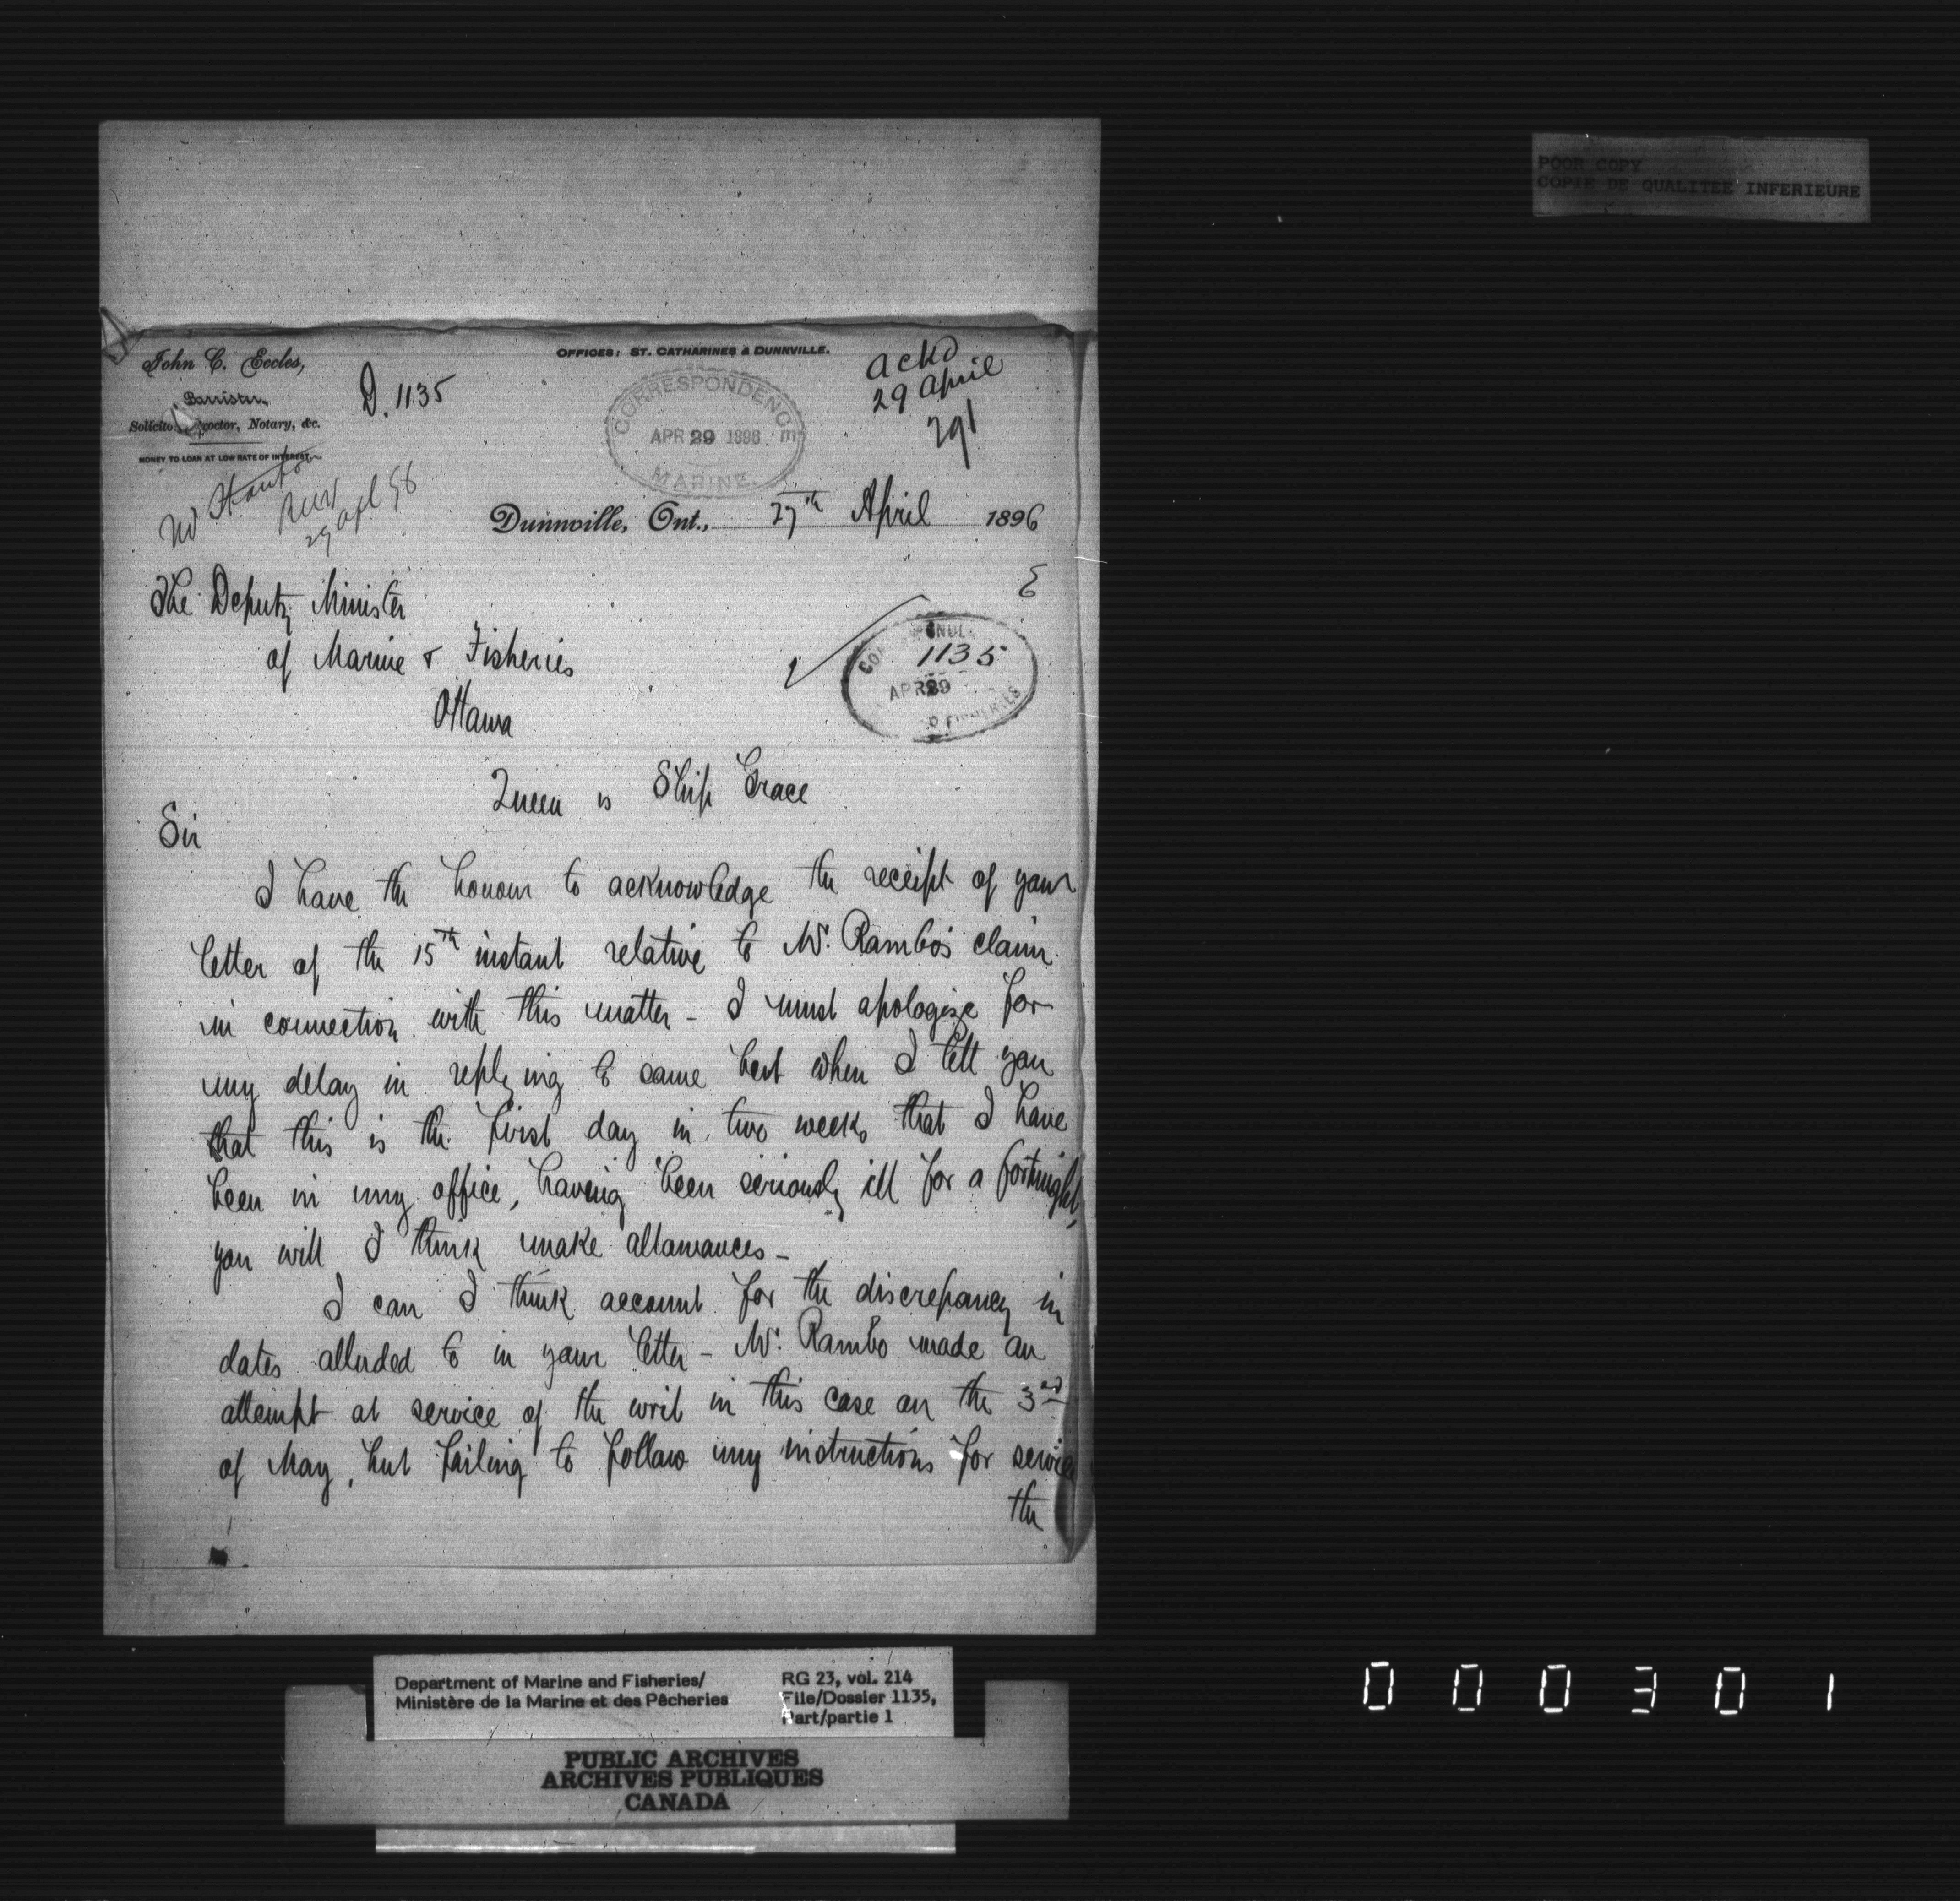 POOR COPY
COPIE DE QUALITEE INFERIEURE
John C. Eccles,
Barrister,
Solicitor, Proctor, Notary, &c.
MONEY TO LOAN AT LOW RATE OF INTEREST.
D. 1135
OFFICES: ST. CATHARINES & DUNNVILLE.
CORRESPONDENCE
APR 29 1896
MARINE.
ackd
29 April
291
29 Apl 96
Dunnville, Ont., 27th April 1896
The Deputy Minister
of Marine & Fisheries
Ottawa
1135
APR 29
FISHERIES
Queen vs Ship Grace
Sir
I have the honour to acknowledge the receipt of your
letter of the 15th instant relative to Mr. Rambo's claim
in connection with this matter - I must apologize for
my delay in replying to same but when I tell you
that this is the first day in two weeks that I have
been in my office, having been seriously ill for a fortnight,
you will I think make allowances -
I can I think account for the discrepancy in
dates alluded to in your letter - Mr. Rambo made an
attempt at service of the writ in this case on the 3rd
of May, but failing to follow my instructions for service
the
Department of Marine and Fisheries/
Ministère de la Marine et des Pêcheries
RG 23, vol. 214
File/Dossier 1135,
Part/partie 1
PUBLIC ARCHIVES
ARCHIVES PUBLIQUES
CANADA
000301